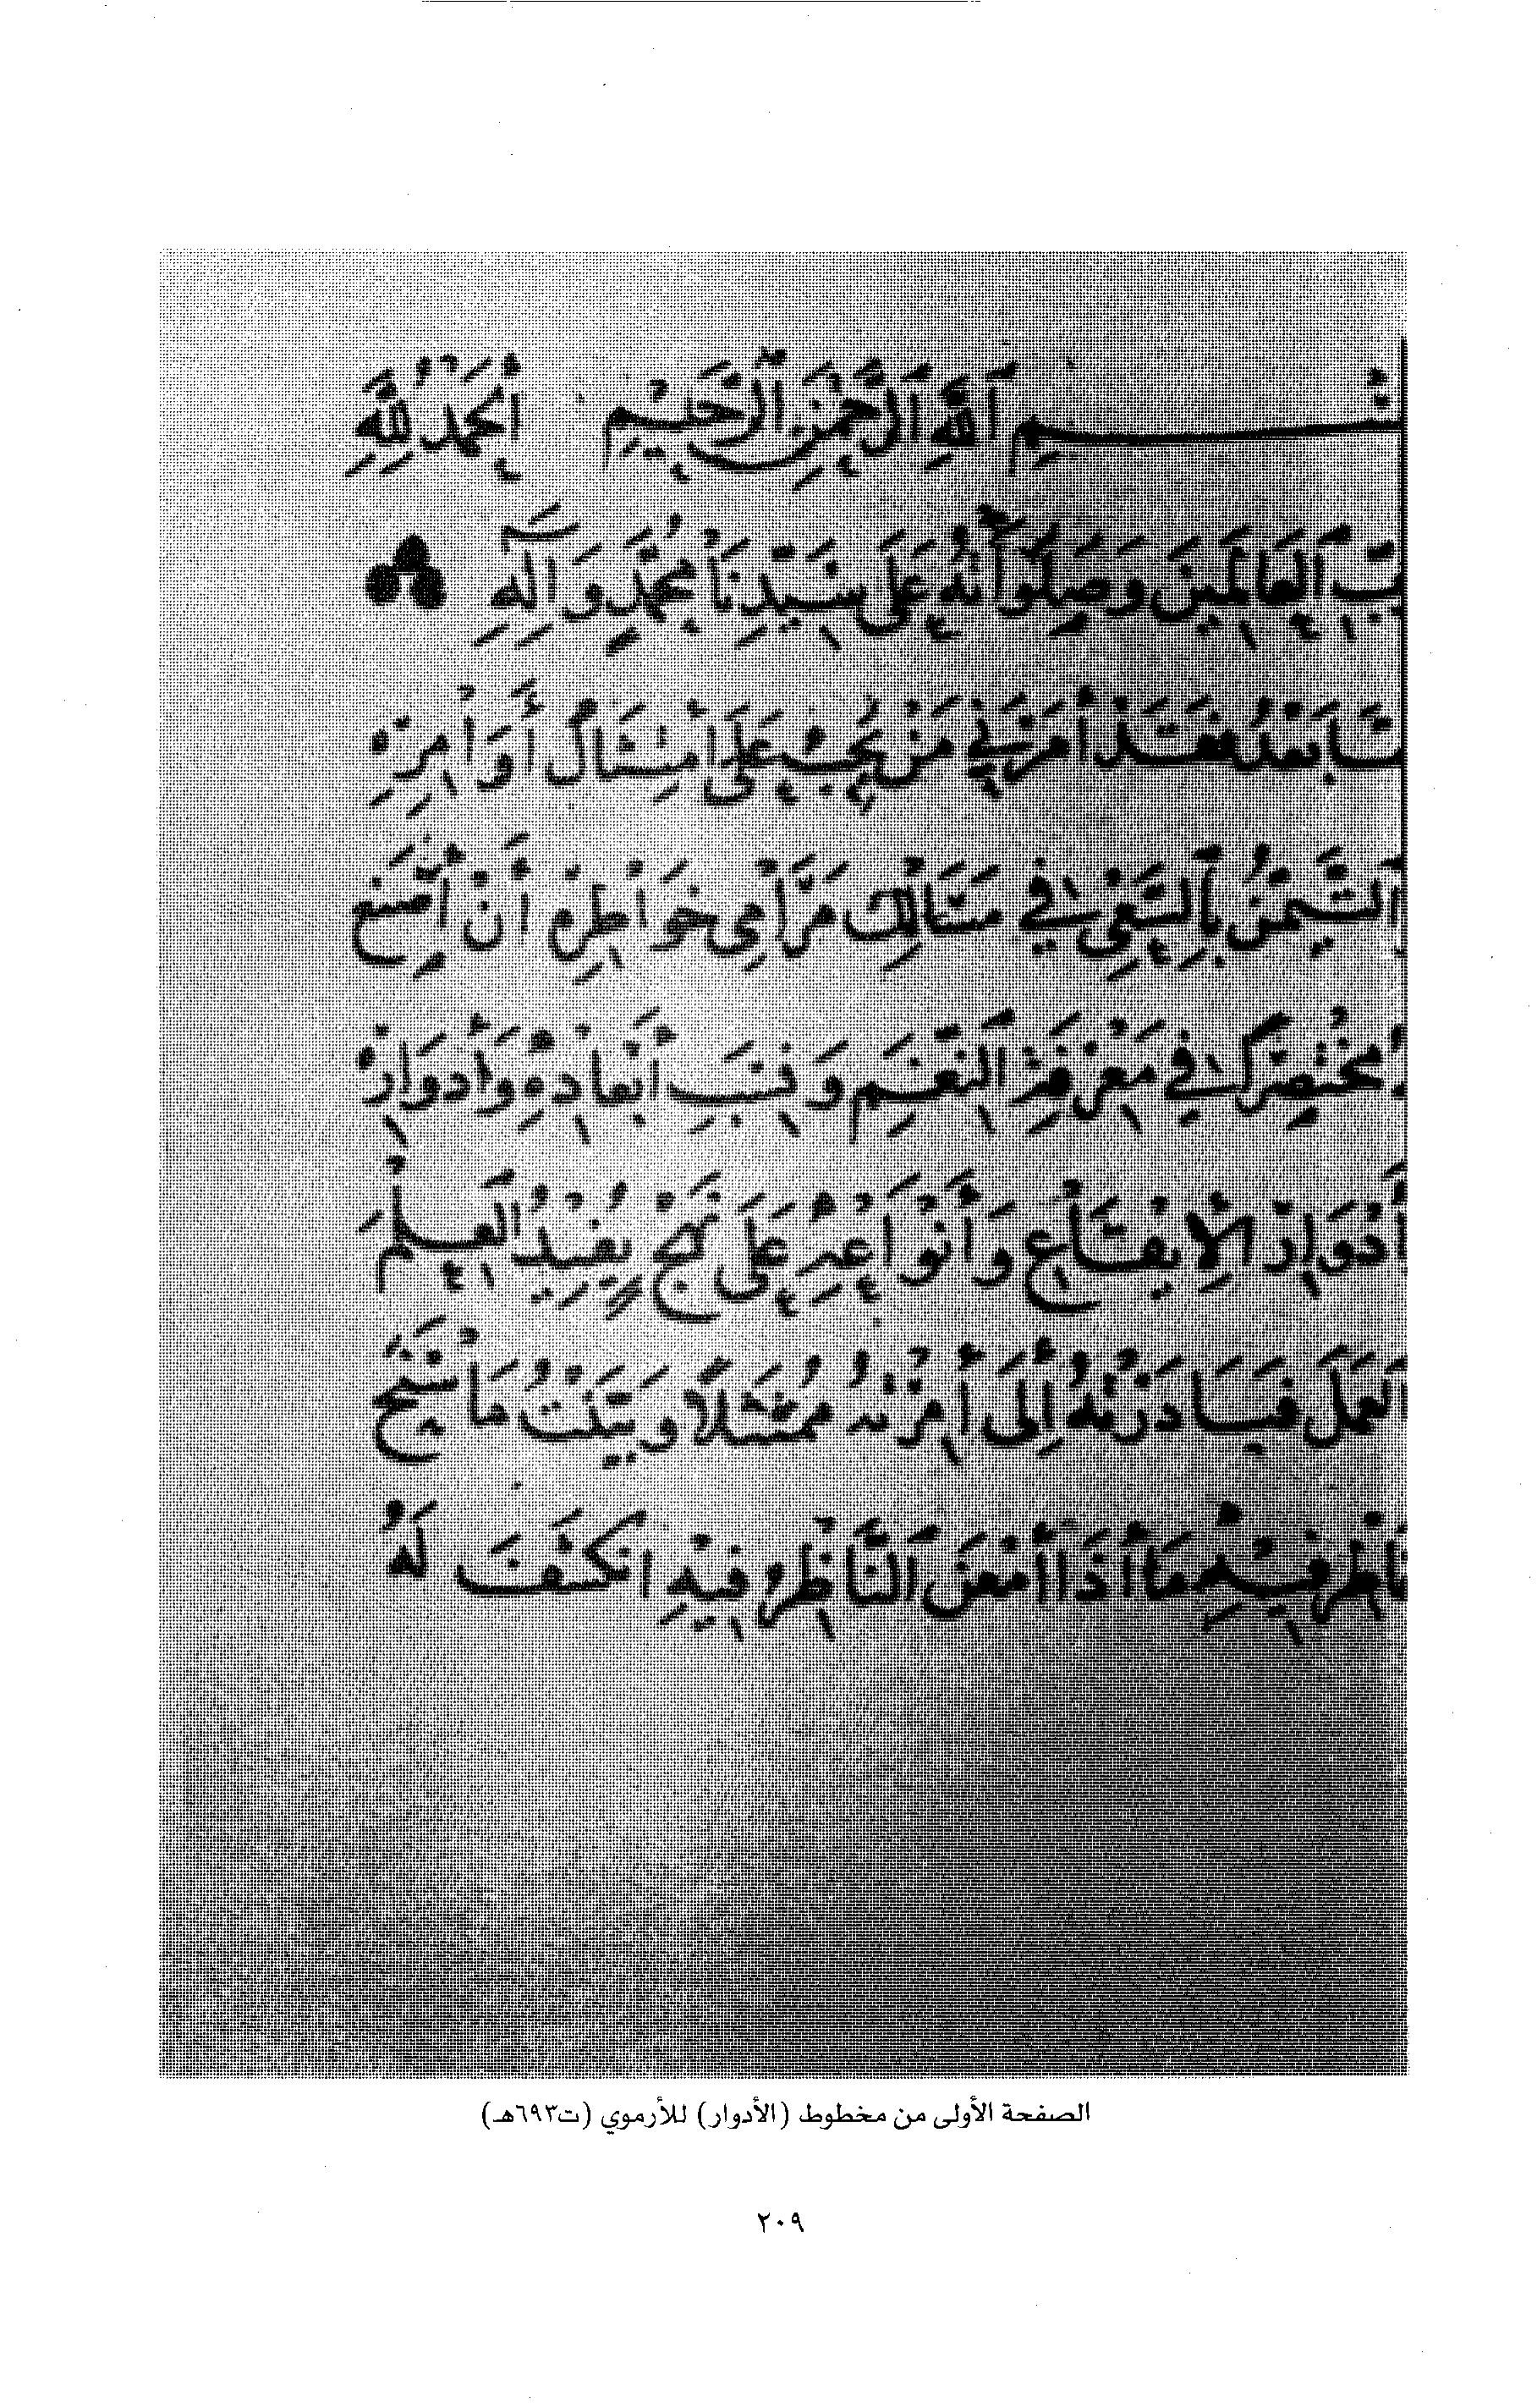 بِسْمِ اَللَّهِ اَلرَّحْمَنِ اَلرَّحَيْمِ اَلْحَمْدُ لِلَّهِ
رَبِّ اَلْعَالَمِينَ وَصَلَوَاتُهُ عَلَى سَيِّدِنَا مُحَمَّدٍ وَآلِهِ
أَمَّا بَعْدُ فَقَدْ أَمَرَنِي مَنْ يَجِبُ عَلَيَّ امْتِثَالُ أَوَامِرِهِ
وَالتَّيَمُّنُ بِالسَّعْيِ فِي مَسَالِكِ مَرَامِي خَوَاطِرِهِ أَنْ أَضَعَ
لَهُ مُخْتَصَرًا فِي مَعْرِفَةِ اَلنَّغَمِ وَنِسَبِ أَبْعَادِهِ وَأَدْوَارِهِ
وَأَدْوَارِ الْإِيقَاعِ وَأَنْوَاعِهِ عَلَى نَهْجٍ يُفِيدُ اَلْعِلْمَ
وَالْعَمَلَ فَبَادَرْتُهُ إِلَى أَمْرِهِ مُمْتَثِلًا وَبَيَّنْتُ مَا سَنَحَ
لِخَاطِرِي فِيهِ مَا إِذَا أَمْعَنَ اَلنَّاظِرُ فِيْهِ انْكَشَفَ لَهُ
الصفحة الأولى من مخطوط (الأدوار) للأرموي (ت٦٩٣هـ)
٢٠٩